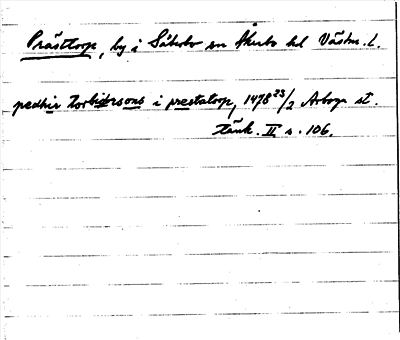 Prästtorp, by i Säterbo sn Åkerbo hd Västm. l.
pedhir torbiørsons i prestatorp, 1478 23/2 Arboga st.
tänk. II s. 106.